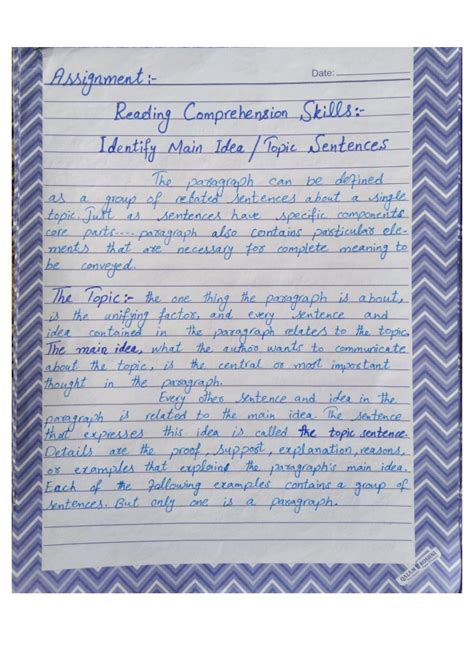 Assignment:-
Date:
Reading Comprehension Skills:-
Identify Main Idea / Topic Sentences
The paragraph can be defined
as a group of related sentences about a single
topic. Just as sentences have specific components
core parts.... paragraph also contains particular ele-
ments that are necessary for complete meaning to
be conveyed.
The Topic:- the one thing the paragraph is about,
is the unifying factor, and every sentence and
idea contained in the paragraph relates to the topic.
The main idea, what the author wants to communicate
about the topic, is the central or most important
thought in the paragraph.
Every other sentence and idea in the
paragraph is related to the main idea. The sentence
that expresses this idea is called the topic sentence.
Details are the proof, support, explanation, reasons,
or examples that explains the paragraph's main idea.
Each of the following examples contains a group of
sentences. But only one is a paragraph.